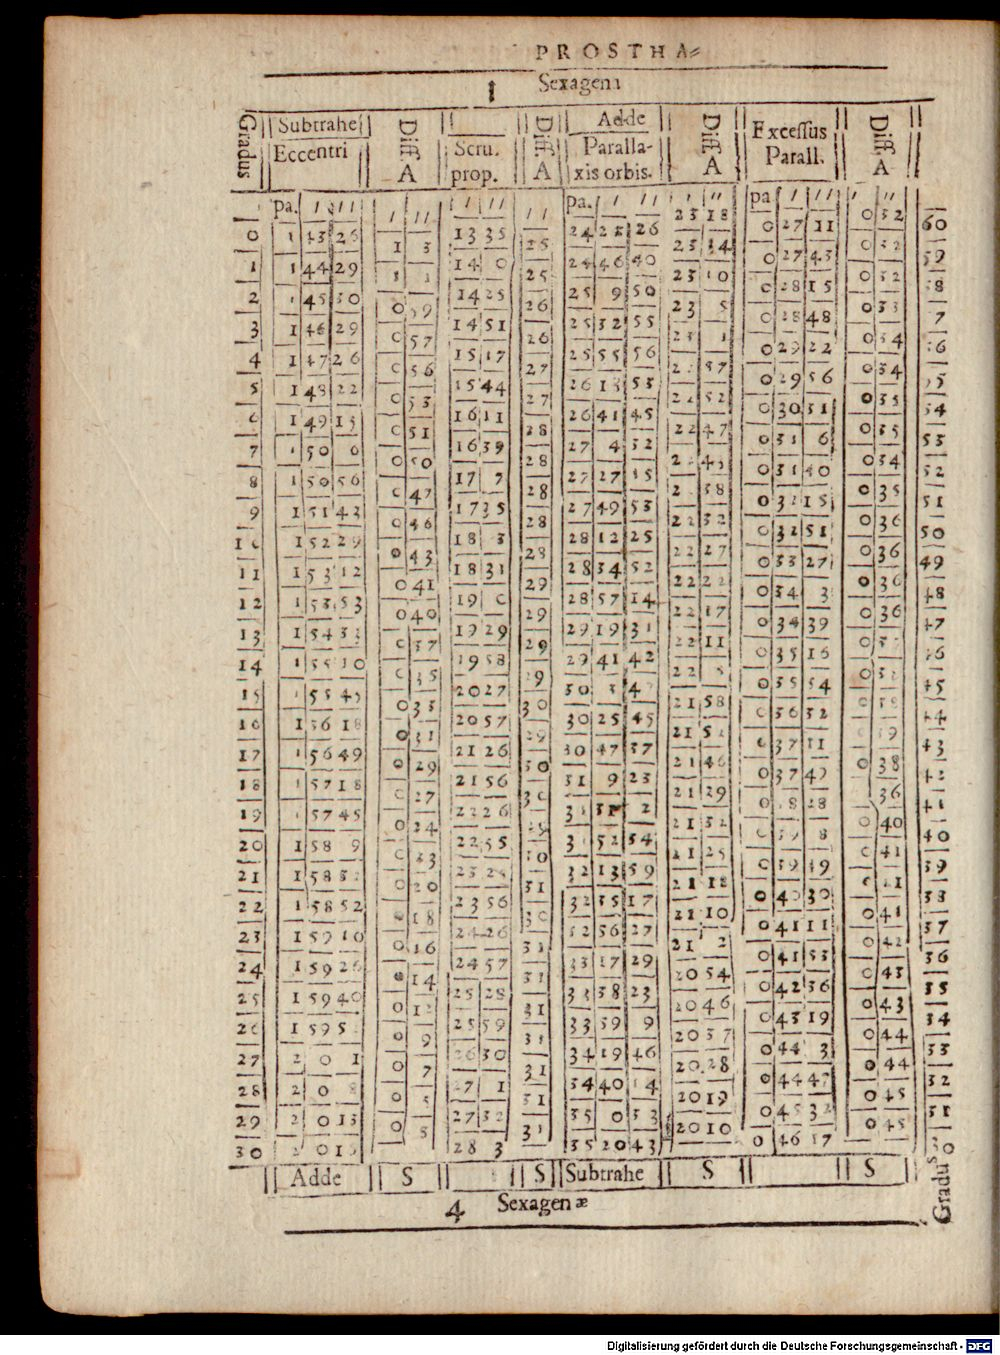 PROSTHA=
1 Sexagena
Gradus Subtrahe Eccentri Diff. A Scru. prop. Diff. A Adde Parallaxis orbis. Diff. A Excessus Parall. Diff. A
pa. ′ ″ ′ ″ ′ ″ ″ pa. ′ ″ 23 18 pa ′ ″ 0 32 60
0 1 43 26 1 3 13 35 25 24 23 26 23 14 0 27 11 0 32 59
1 1 44 29 1 1 14 0 25 24 46 40 23 10 0 27 43 0 32 58
2 1 45 30 0 59 14 25 26 25 9 50 23 5 0 28 15 0 33 7
3 1 46 29 0 57 14 51 26 25 32 55 23 1 0 28 48 0 34 56
4 1 47 26 0 56 15 17 27 25 55 56 57 0 29 22 0 34 55
5 1 48 22 0 53 15 44 27 26 18 53 22 52 0 29 56 0 35 54
6 1 49 15 0 51 16 11 28 26 41 45 22 47 0 30 31 0 35 53
7 1 50 0 0 50 16 39 28 27 4 32 22 43 0 31 6 0 34 52
8 1 50 56 0 47 17 7 28 27 27 15 38 0 31 40 0 35 51
9 1 51 43 0 46 17 35 28 27 49 53 22 32 0 32 15 0 36 50
10 1 52 29 0 43 18 3 28 28 12 25 22 27 0 32 51 0 36 49
11 1 53 12 0 41 18 31 29 28 34 52 22 22 0 33 27 0 36 48
12 1 53 53 0 40 19 0 29 28 57 14 22 17 0 34 3 0 36 47
13 1 54 33 0 37 19 29 29 29 19 31 22 11 0 34 39 0 37 46
14 1 55 10 0 35 19 58 29 29 41 42 22 5 0 35 16 0 38 45
15 1 55 45 0 33 20 27 30 30 3 47 21 58 0 35 54 0 38 44
16 1 56 18 0 31 20 57 29 30 25 45 21 52 0 36 32 39 43
17 1 56 49 0 29 21 26 30 30 47 37 21 46 0 37 11 0 38 42
18 1 57 18 0 27 21 56 30 31 9 23 21 29 0 37 49 36 41
19 1 57 45 0 24 22 26 29 31 31 2 21 32 0 38 28 0 40 40
20 1 58 9 0 23 22 55 30 31 52 54 21 25 0 39 8 0 41 39
21 1 58 32 0 20 23 25 31 32 13 59 21 18 0 39 49 0 41 38
22 1 58 52 0 18 23 56 30 32 35 17 21 10 0 40 30 0 41 37
23 1 59 10 0 16 24 26 31 32 56 27 21 2 0 41 11 0 42 36
24 1 59 26 0 14 24 57 31 33 17 29 20 54 0 41 53 0 43 35
25 1 59 40 0 12 25 28 31 33 38 23 20 46 0 42 36 0 43 34
26 1 59 52 0 9 25 59 31 33 59 9 20 37 0 43 19 0 44 33
27 2 0 1 0 7 26 30 31 34 19 46 20 28 0 44 3 0 44 32
28 2 0 8 0 5 27 1 31 34 40 14 20 19 0 44 47 0 45 31
29 2 0 13 0 5 27 32 31 35 0 33 20 10 0 45 32 0 45 30
30 2 0 15 28 3 35 20 43 0 46 17
Adde S S Subtrahe S S Gradus
4 Sexagenæ
Digitalisierung gefördert durch die Deutsche Forschungsgemeinschaft - DFG